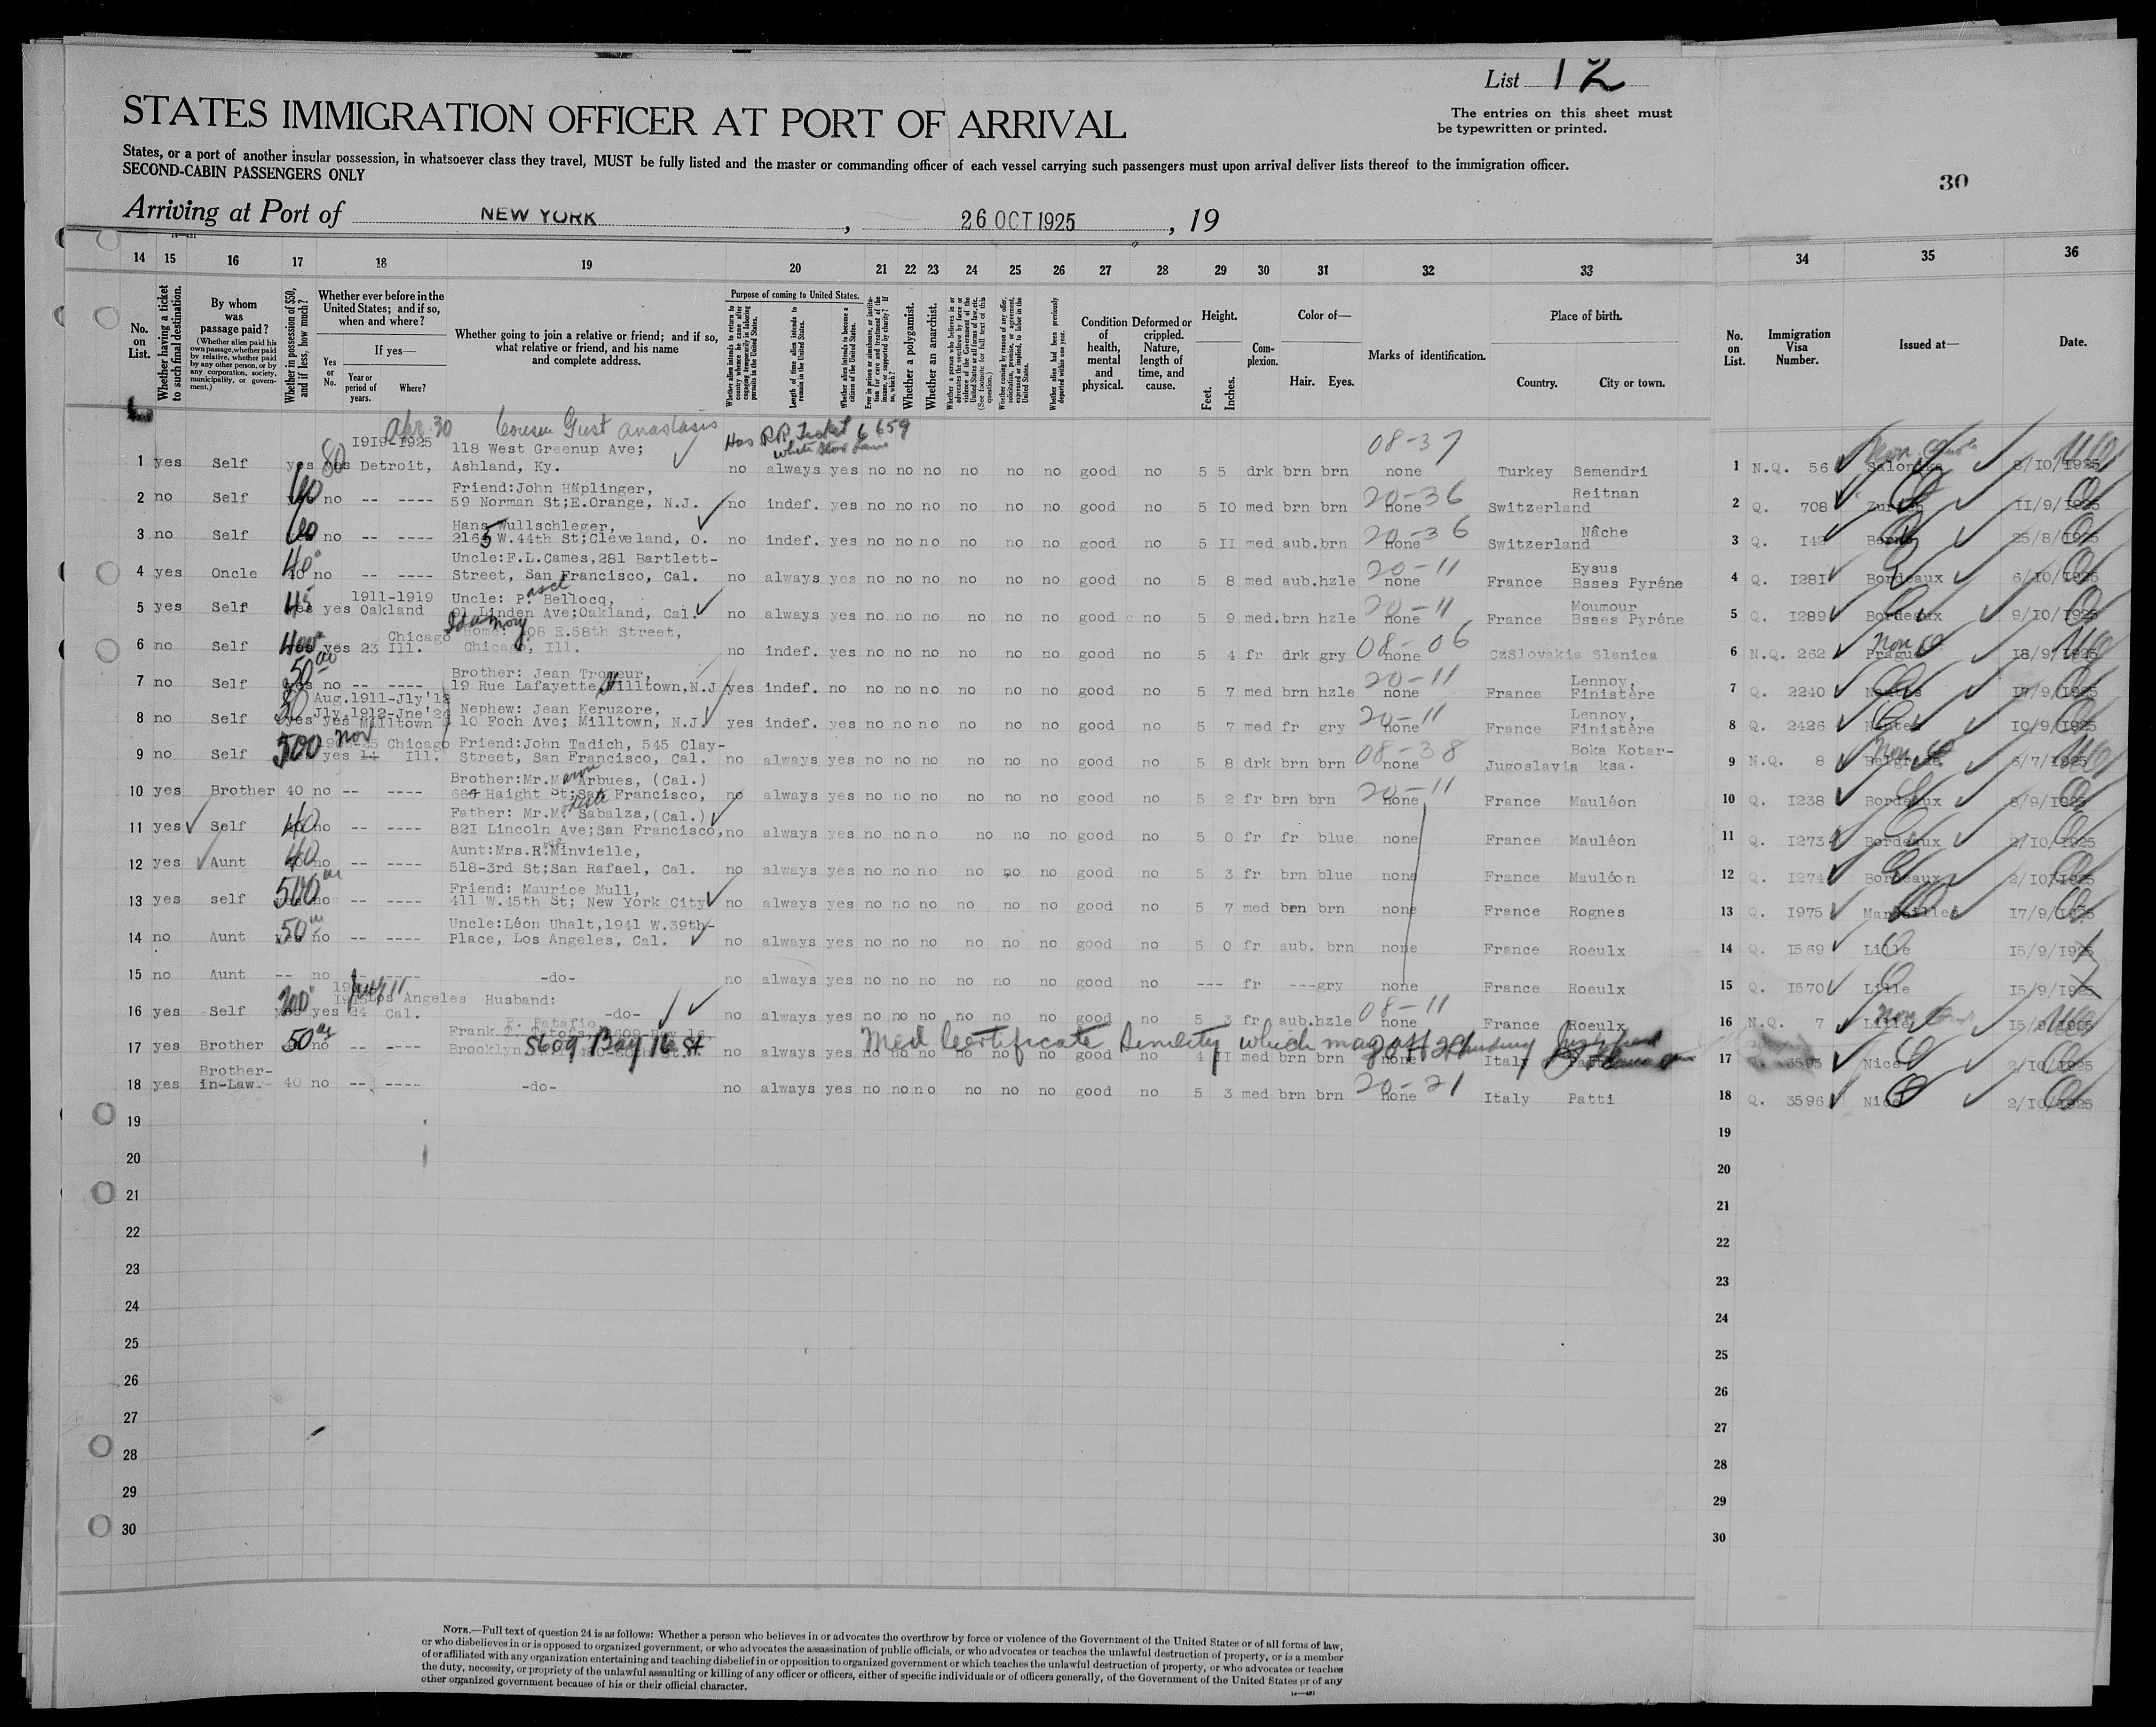 List 12
STATES IMMIGRATION OFFICER AT PORT OF ARRIVAL
The entries on this sheet must
be typewritten or printed.
States, or a port of another insular possession, in whatsoever class they travel, MUST be fully listed and the master or commanding officer of each vessel carrying such passengers must upon arrival deliver lists thereof to the immigration officer.
SECOND-CABIN PASSENGERS ONLY
30
Arriving at Port of NEW YORK, 26 OCT 1925, 19
14 15 16 17 18 19 20 21 22 23 24 25 26 27 28 29 30 31 32 33 34 35 36
No. on List.
Whether having a ticket to such final destination.
By whom was passage paid?
(Whether alien paid his own passage, whether paid by relative, whether paid by any other person, or by any corporation, society, municipality, or government.)
Whether in possession of $50, and if less, how much?
Whether ever before in the United States; and if so, when and where?
Yes or No.
If yes—
Year or period of years.
Where?
Whether going to join a relative or friend; and if so, what relative or friend, and his name and complete address.
Purpose of coming to United States.
Whether alien intends to return to country whence he came after engaging temporarily in laboring pursuits in the United States.
Length of time alien intends to remain in the United States.
Whether alien intends to become a citizen of the United States.
Ever in prison or almshouse, or institution for care and treatment of the insane, or supported by charity? If so, which?
Whether a polygamist.
Whether an anarchist.
Whether a person who believes in or advocates the overthrow by force or violence of the Government of the United States or all forms of law, etc. (See footnote for full text of this question.)
Whether coming by reason of any offer, solicitation, promise, or agreement, expressed or implied, to labor in the United States.
Whether alien had been previously deported within one year.
Condition of health, mental and physical.
Deformed or crippled. Nature, length of time, and cause.
Height.
Feet. Inches.
Complexion.
Color of—
Hair. Eyes.
Marks of identification.
Place of birth.
Country. City or town.
No. on List.
Immigration Visa Number.
Issued at—
Date.
Apr. 30 Cousin Gust Anastasis Has RR Ticket 6659
1919-1925 118 West Greenup Ave; 08-37
1 yes Self yes 80 yes Detroit, Ashland, Ky. no always yes no no no no no no good no 5 5 drk brn brn none Turkey Semendri 1 N.Q. 56 Salonika 8/10/1925
Friend:John Häplinger, 20-36 Reitnan
2 no Self no -- ---- 59 Norman St;E.Orange, N.J. no indef. yes no no no no no no good no 5 10 med brn brn none Switzerland 2 Q. 708 Zurich 11/9/1925
Hans Wullschleger, 20-36 Nâche
3 no Self no -- ---- 2165 W.44th St;Cleveland, O. no indef. yes no no no no no no good no 5 11 med aub.brn none Switzerland 3 Q. 142 Berne 25/8/1925
40 Uncle:F.L.Cames,281 Bartlett- 20-11 Eysus
4 yes Oncle 40 no -- ---- Street, San Francisco, Cal. no always yes no no no no no no good no 5 8 med aub.hzle none France Bsses Pyréne 4 Q. 1281 Bordeaux 6/10/1925
45 1911-1919 Uncle: P. ascl Bellocq, 20-11 Moumour
5 yes Self yes yes Oakland 91 Linden Ave;Oakland, Cal. no always yes no no no no no no good no 5 9 med.brn hzle none France Bsses Pyréne 5 Q. 1289 Bordeaux 9/10/1925
400 Chicago Home: 408 E.58th Street, 08-06
6 no Self yes 23 Ill. Chicago, Ill. no indef. yes no no no no no no good no 5 4 fr drk gry none CzSlovakia Slanica 6 N.Q. 262 Prague 18/9/1925
50 Brother: Jean Tromeur, 20-11 Lennoy,
7 no Self yes no -- ---- 19 Rue Lafayette Milltown,N.J. yes indef. no no no no no no no good no 5 7 med brn hzle none France Finistère 7 Q. 2240 Nantes 17/9/1925
Aug.1911-Jly'12 Nephew: Jean Keruzore, 20-11 Lennoy,
8 no Self yes yes Jly.1912-Jne'24 Milltown 10 Foch Ave; Milltown, N.J. yes indef. yes no no no no no no good no 5 7 med fr gry none France Finistère 8 Q. 2426 Nantes 10/9/1925
500 Nov Chicago Friend:John Tadich, 545 Clay- 08-38 Boka Kotar-
9 no Self yes 14 Ill. Street, San Francisco, Cal. no always yes no no no no no no good no 5 8 drk brn brn none Jugoslavia ksa. 9 N.Q. 8 Belgrade 6/7/1925
Brother:Mr.M Arbues, (Cal.) 20-11
10 yes Brother 40 no -- ---- Haight St;San Francisco, no always yes no no no no no no good no 5 2 fr brn brn none France Mauléon 10 Q. 1238 Bordeaux 8/9/1925
40 Father: Mr.M. Sabalza,(Cal.)
11 yes Self no -- ---- 821 Lincoln Ave;San Francisco, no always yes no no no no no no good no 5 0 fr fr blue none France Mauléon 11 Q. 1273 Bordeaux 2/10/1925
40 Aunt:Mrs.R. Minvielle,
12 yes Aunt no -- ---- 518-3rd St;San Rafael, Cal. no always yes no no no no no no good no 5 3 fr brn blue none France Mauléon 12 Q. 1274 Bordeaux 2/10/1925
500 Friend: Maurice Mull,
13 yes self no -- ---- 411 W.45th St; New York City no always yes no no no no no no good no 5 7 med brn brn none France Rognes 13 Q. 1975 Marseilles 17/9/1925
50 Uncle:Léon Uhalt,1941 W.39th-
14 no Aunt yes no -- ---- Place, Los Angeles, Cal. no always yes no no no no no no good no 5 0 fr aub. brn none France Roeulx 14 Q. 1569 Lille 15/9/1925
15 no Aunt -- no -- ---- -do- no always yes no no no no no no good no --- fr ---gry none France Roeulx 15 Q. 1570 Lille 15/9/1925
200 Los Angeles Husband: 08-11
16 yes Self yes yes 24 Cal. -do- no always yes no no no no no no good no 5 3 fr aub.hzle none France Roeulx 16 N.Q. 7 Lille 15/9/1925
50 Frank 5609 Bay 16 St Med Certificate Senility which may aff
17 yes Brother no -- ---- Brooklyn no always yes no no no no no no good no 4 11 med brn brn none Italy 17 Q. 3595 Nice 2/10/1925
Brother- 20-21
18 yes in-Law. 40 no -- ---- -do- no always yes no no no no no no good no 5 3 med brn brn none Italy Patti 18 Q. 3596 Nice 2/10/1925
19 19
20 20
21 21
22 22
23 23
24 24
25 25
26 26
27 27
28 28
29 29
30 30
NOTE.—Full text of question 24 is as follows: Whether a person who believes in or advocates the overthrow by force or violence of the Government of the United States or of all forms of law,
or who disbelieves in or is opposed to organized government, or who advocates the assassination of public officials, or who advocates or teaches the unlawful destruction of property, or is a member
of or affiliated with any organization entertaining and teaching disbelief in or opposition to organized government or which teaches the unlawful destruction of property, or who advocates or teaches
the duty, necessity, or propriety of the unlawful assaulting or killing of any officer or officers, either of specific individuals or of officers generally, of the Government of the United States or of any
other organized government because of his or their official character.